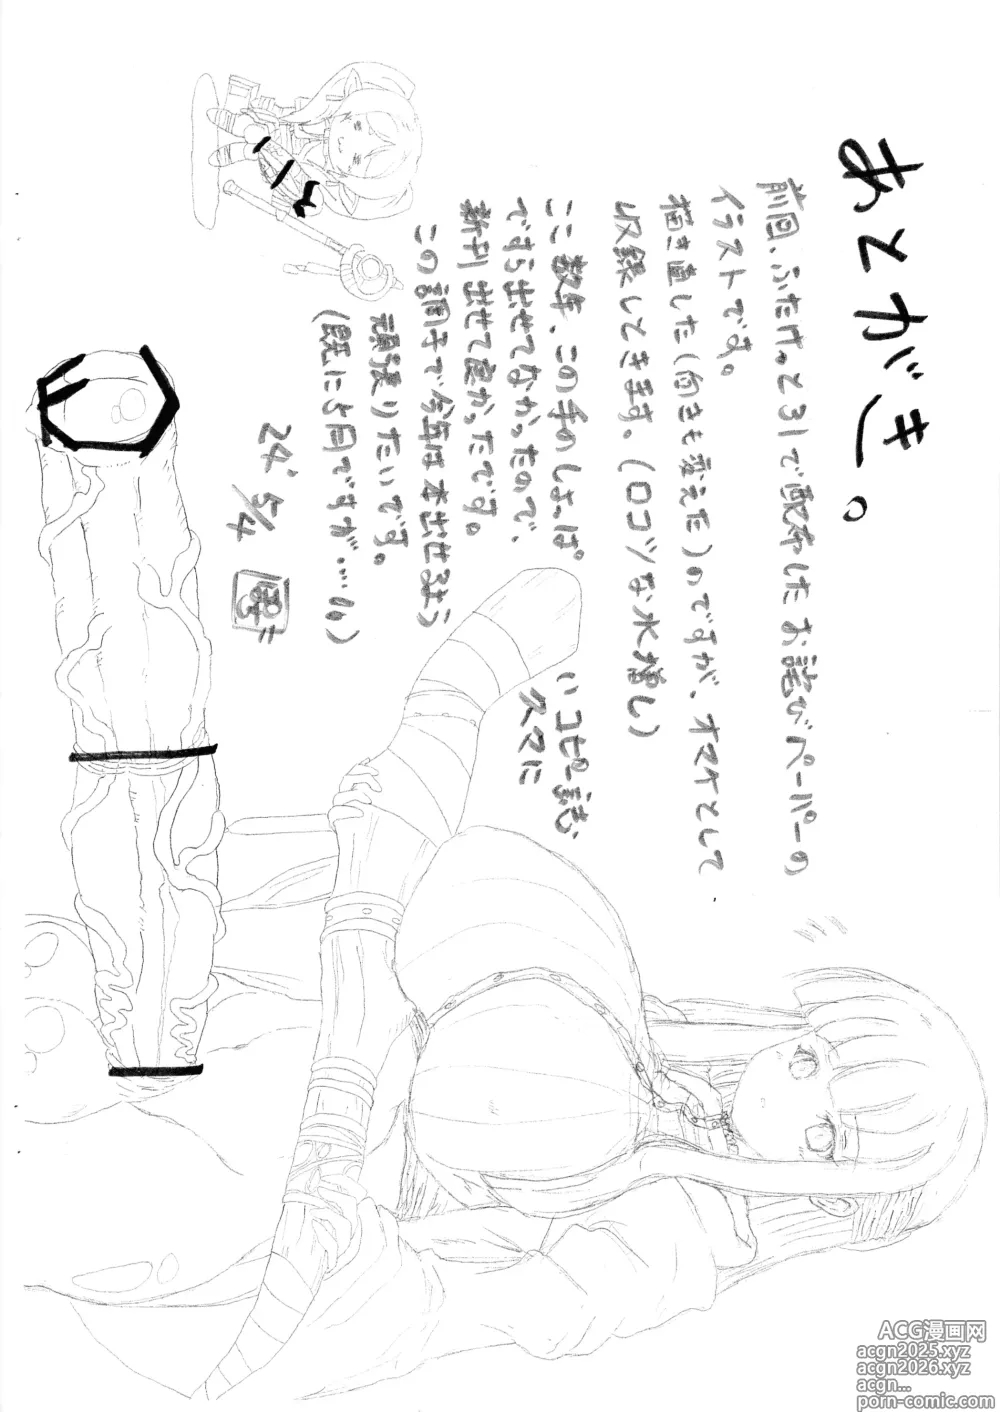 あとがき。
前回、ふたけっと31で配布したお詫びペーパーの
イラストです。
描き直した(向きも変えた)のですが、オマケとして
収録しときます、(ロコツな水増し)
ここ数年、この手のしょっぱい コピー誌
ですら出せてなかったので、
新刊出せて良かったです。
この調子で今年は本出せるよう
頑張りたいです。
(既に5月ですが…)
24' 5/4
ACG漫画网
acgn2025.xyz
acgn2026.xyz
acgn...
porn-comic.com